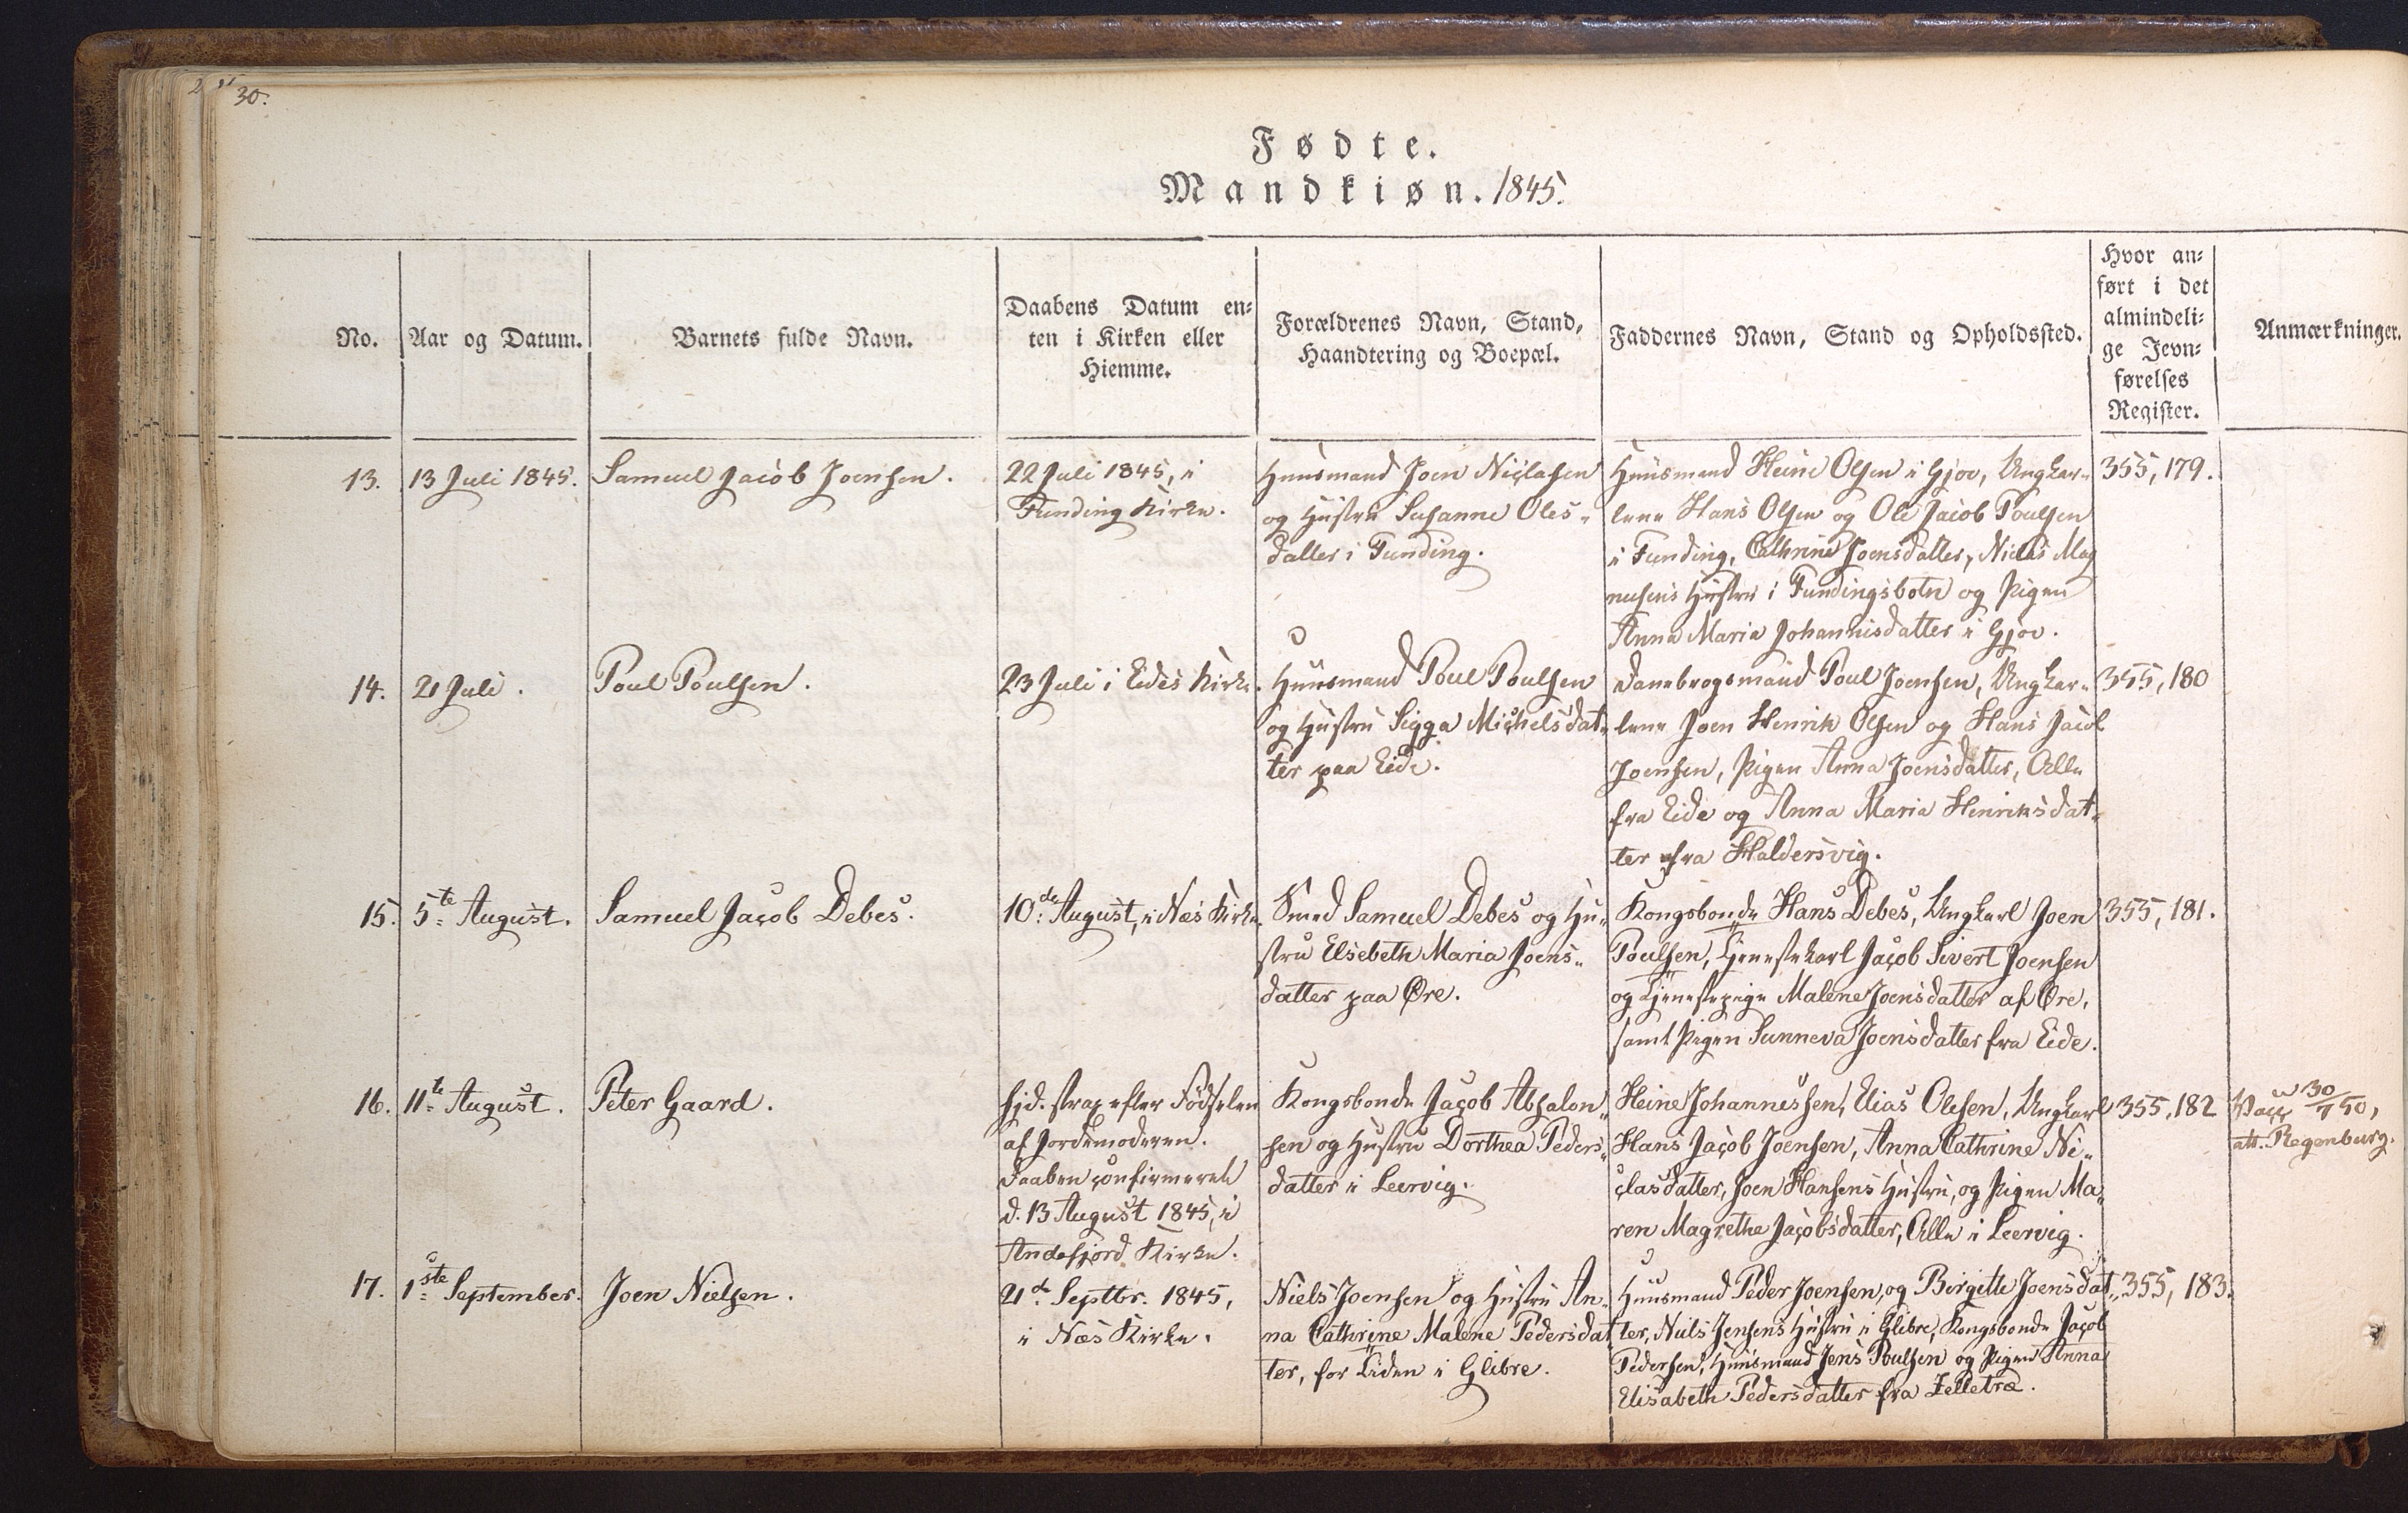 30.
Fødte.
Mandkiøn. 1845.
No.
Aar og Datum.
Barnets fulde Navn.
Daabens Datum en-
ten i Kirken eller
Hiemme.
Forældrenes Navn, Stand,
Haandtering og Boepæl.
Faddernes Navn, Stand og Opholdssted.
Hvor an-
ført i det
almindeli-
ge Jevn-
førelses
Register.
Anmærkninger.
13.
13 Juli 1845.
Samuel Jacob Joensen.
22 Juli 1845, i
Funding Kirke.
Huusmand Joen Niclasen
og Hustru Susanne Oles-
datter i Funding.
Huusmand Heine Olsen i Gjov, Ungkar-
lene Hans Olsen og Ole Jacob Poulsen
i Funding, Cathrine Joensdatter, Niclas Mag
nusens Hustru i Fundingsbotn og Pigen
Anna Maria Johannisdatter i Gjov.
355, 179.
14.
21 Juli.
Poul Poulsen.
23 Juli i Eides Kirke.
Huusmand Poul Poulsen
og Hustru Sigga Michelsdat-
ter paa Eide.
Danebrogsmand Poul Joensen, Ungkar-
lene Joen Henrik Olsen og Hans Jacob
Joensen, Pigen Anna Joensdatter, Alle
fra Eide og Anna Maria Henriksdat-
ter fra Haldersvig.
355, 180
15.
5te August.
Samuel Jacob Debes.
10de August, i Næs Kirke.
Smed Samuel Debes og Hu-
stru Elsebeth Maria Joens-
datter paa Øre.
Kongsbonde Hans Debes, Ungkarl Joen
Poulsen, Tjenestekarl Jacob Sivert Joensen
og Tjenestepige Malene Joensdatter af Øre,
samt Pigen Sunneva Joensdatter fra Eide.
355, 181.
16.
11te August.
Peter Gaard.
Hjd. strax efter Fødselen
af Jordemoderen.
Daaben confirmeret
d. 13 August 1845, i
Andefjord Kirke.
Kongsbonde Jacob Absalon-
sen og Hustru Dorthea Peders-
datter i Leervig.
Heine Johannessen, Elias Olesen, Ungkarl
Hans Jacob Joensen, Anna Cathrine Ni-
clasdatter, Joen Hansens Hustru, og Pigen Ma-
ren Magrethe Jacobsdatter, Alle i Leervig.
355, 182
Vacc. 30/7 50,
att. Regenburg.
17.
1ste September.
Joen Nielsen.
21de Septbr. 1845,
i Næs Kirke.
Niels Joensen og Hustru An-
na Cathrine Malene Pedersdat
ter, for Tiden i Glibre.
Huusmand Peder Joensen, og Birgitte Joensdat-
ter, Niels Jensens Hustru i Glibre, Kongsbonde Jacob
Pedersen, Huusmand Jens Poulsen og Pigen Anna
Elisabeth Pedersdatter fra Zelletræ.
355, 183.